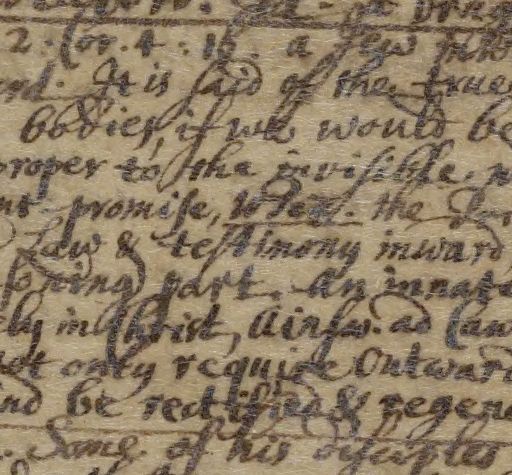 2. Cor. 4. 16. a few
end. It is said of the true
bodies, if we would be
proper to the invisible
promise, the
Law & testimony inward
part. An innate
in Christ, Ainsw. ad Can
not only require Outward
and be rectified & regene
Some of his disciples